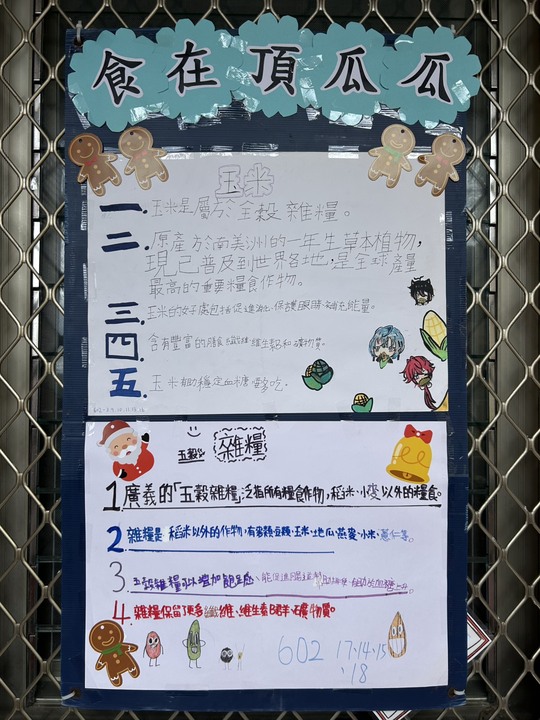 食在頂瓜瓜
玉米
一. 玉米是屬於全穀雜糧。
二. 原產於南美洲的一年生草本植物,
現已普及到世界各地,是全球產量
最高的重要糧食作物。
三. 玉米的好處包括促進消化、保護眼睛、補充能量。
四. 含有豐富的膳食纖維、維生素和礦物質。
五. 玉米幫助穩定血糖
五穀 雜糧
1. 廣義的「五穀雜糧」泛指所有糧食作物,稻米、小麥以外的糧食。
2. 雜糧是稻米以外的作物,有
玉米、地瓜、燕麥、小米、薏仁等。
3. 五穀雜糧可以增加飽足感、
4. 雜糧保留了更多纖維、維生素B群、礦物質。
602 17、14、15
、18